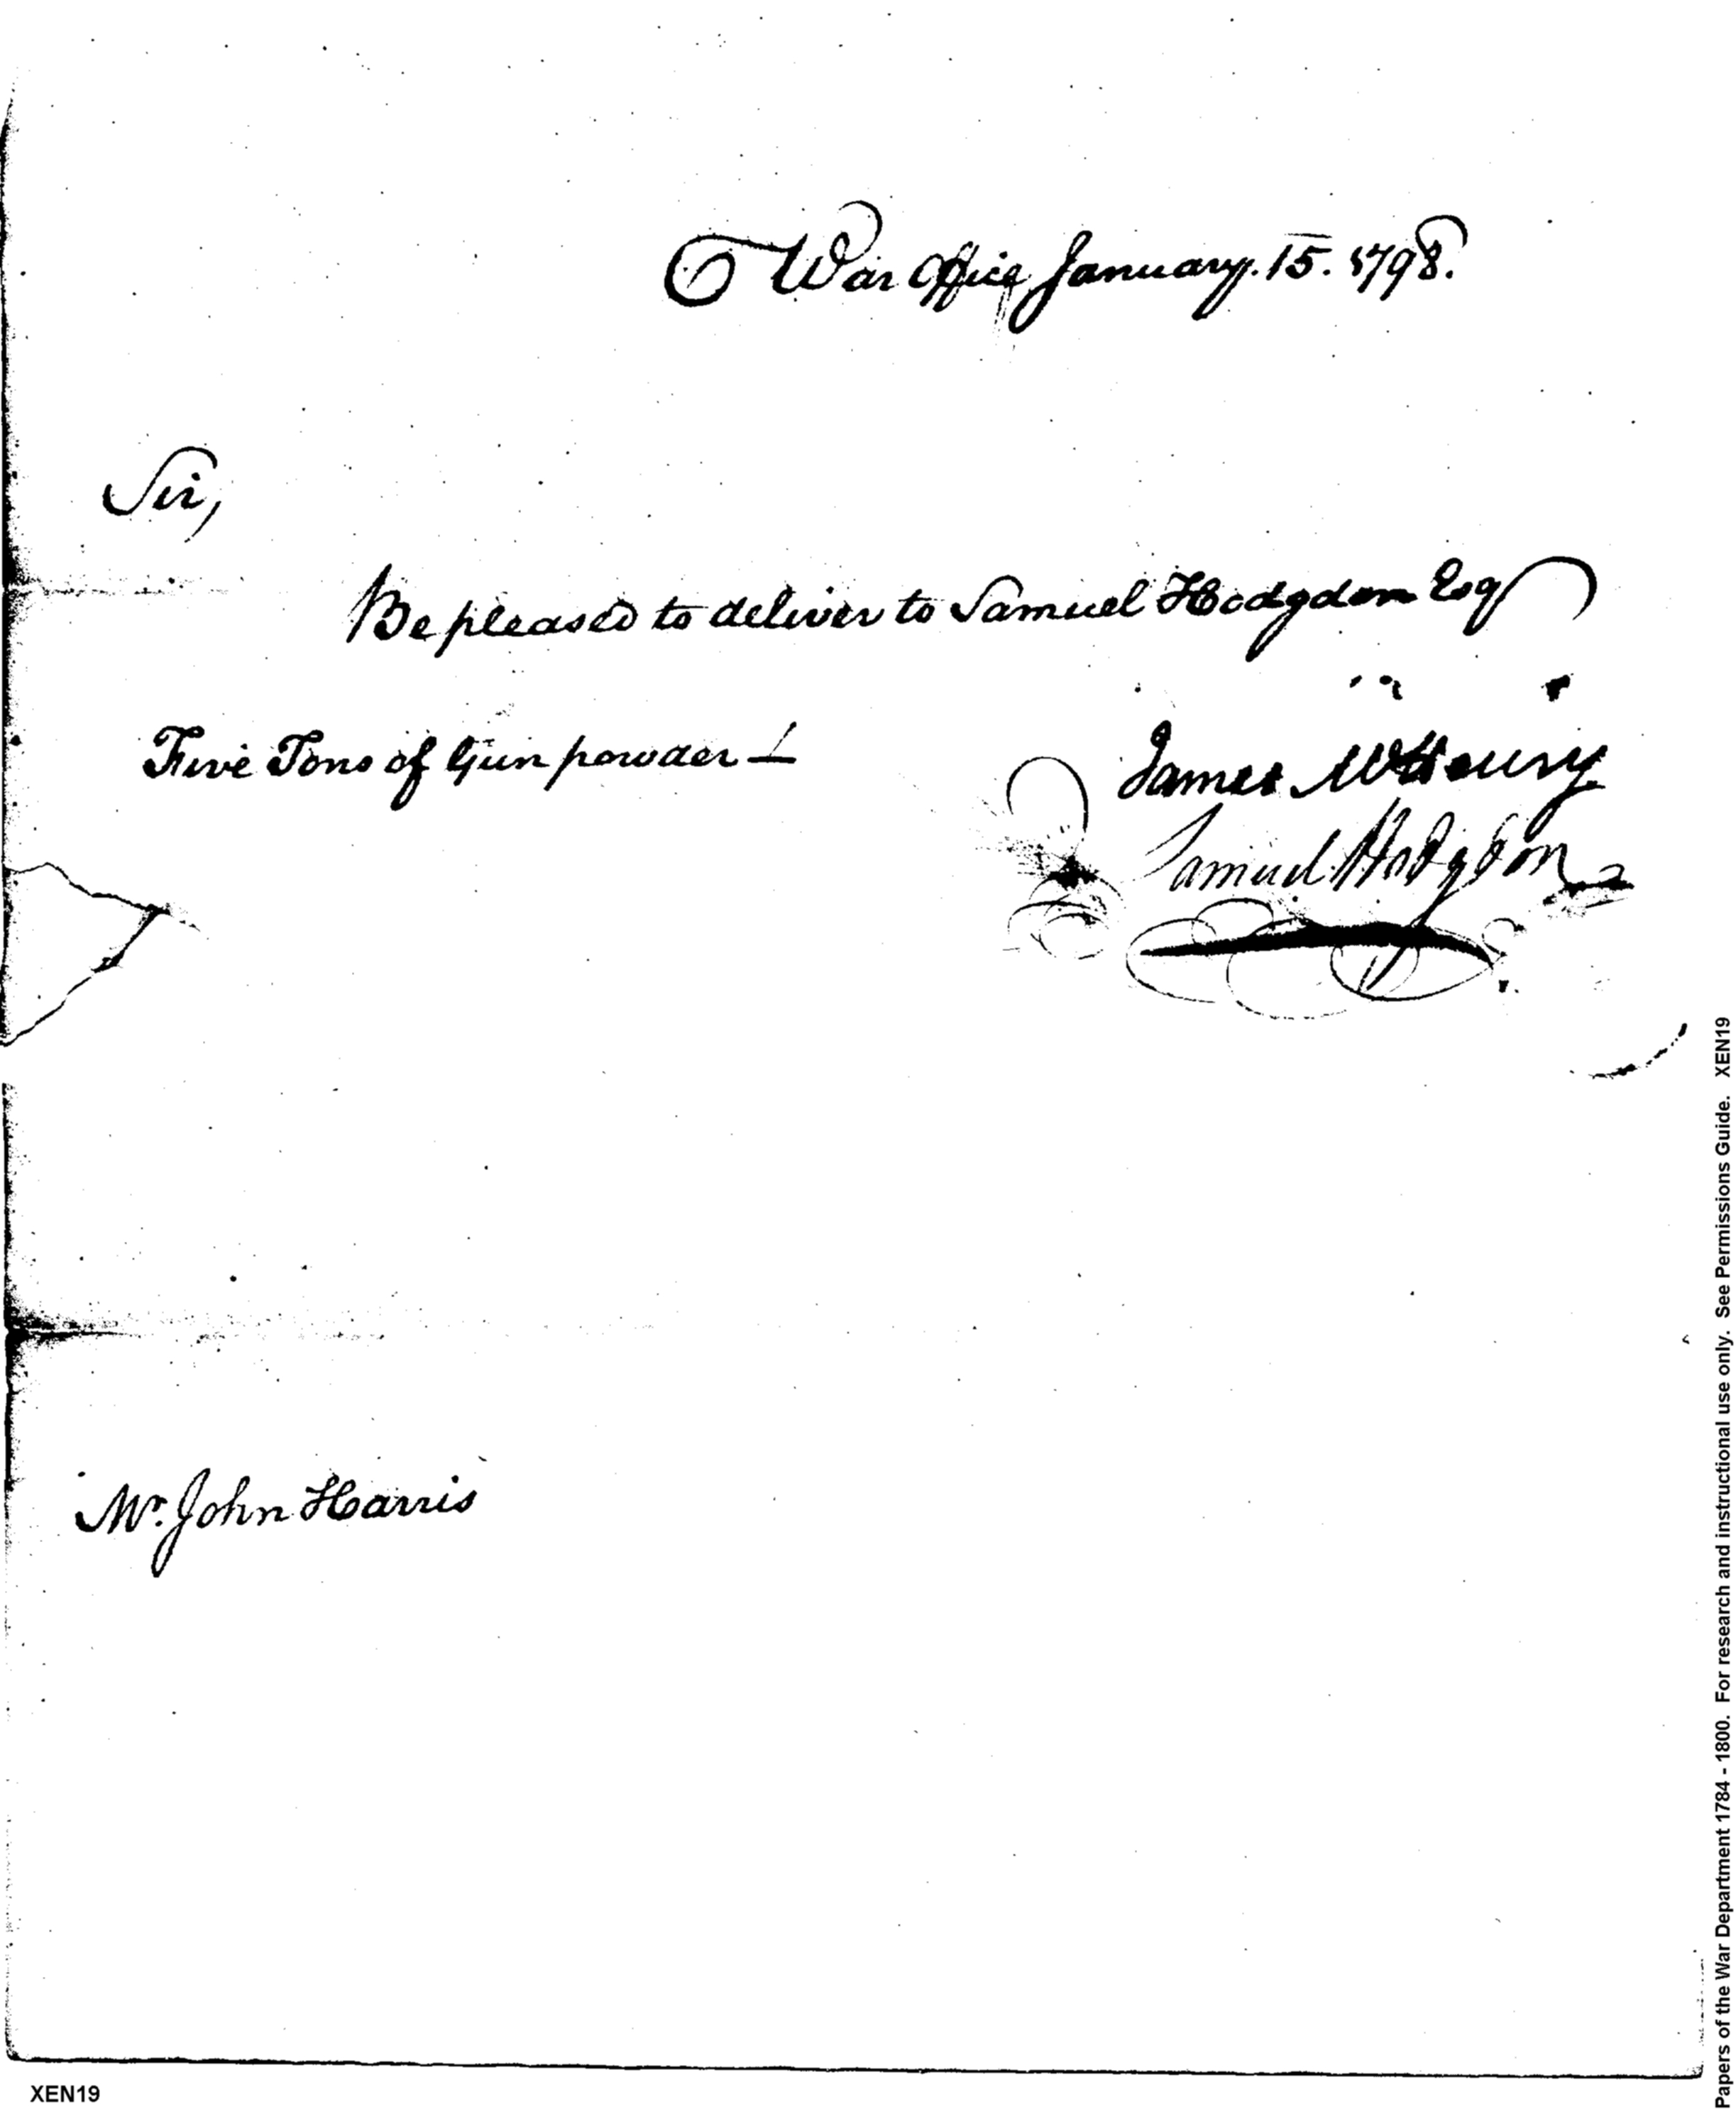 War Office January. 15. 1798.
Sir,
Be pleased to deliver to Samuel Hodgdon Esq
Five Tons of Gun powder —
James McHenry
Samuel Hodgdon
Mr. John Harris
XEN19
Papers of the War Department 1784 - 1800. For research and instructional use only. See Permissions Guide. XEN19